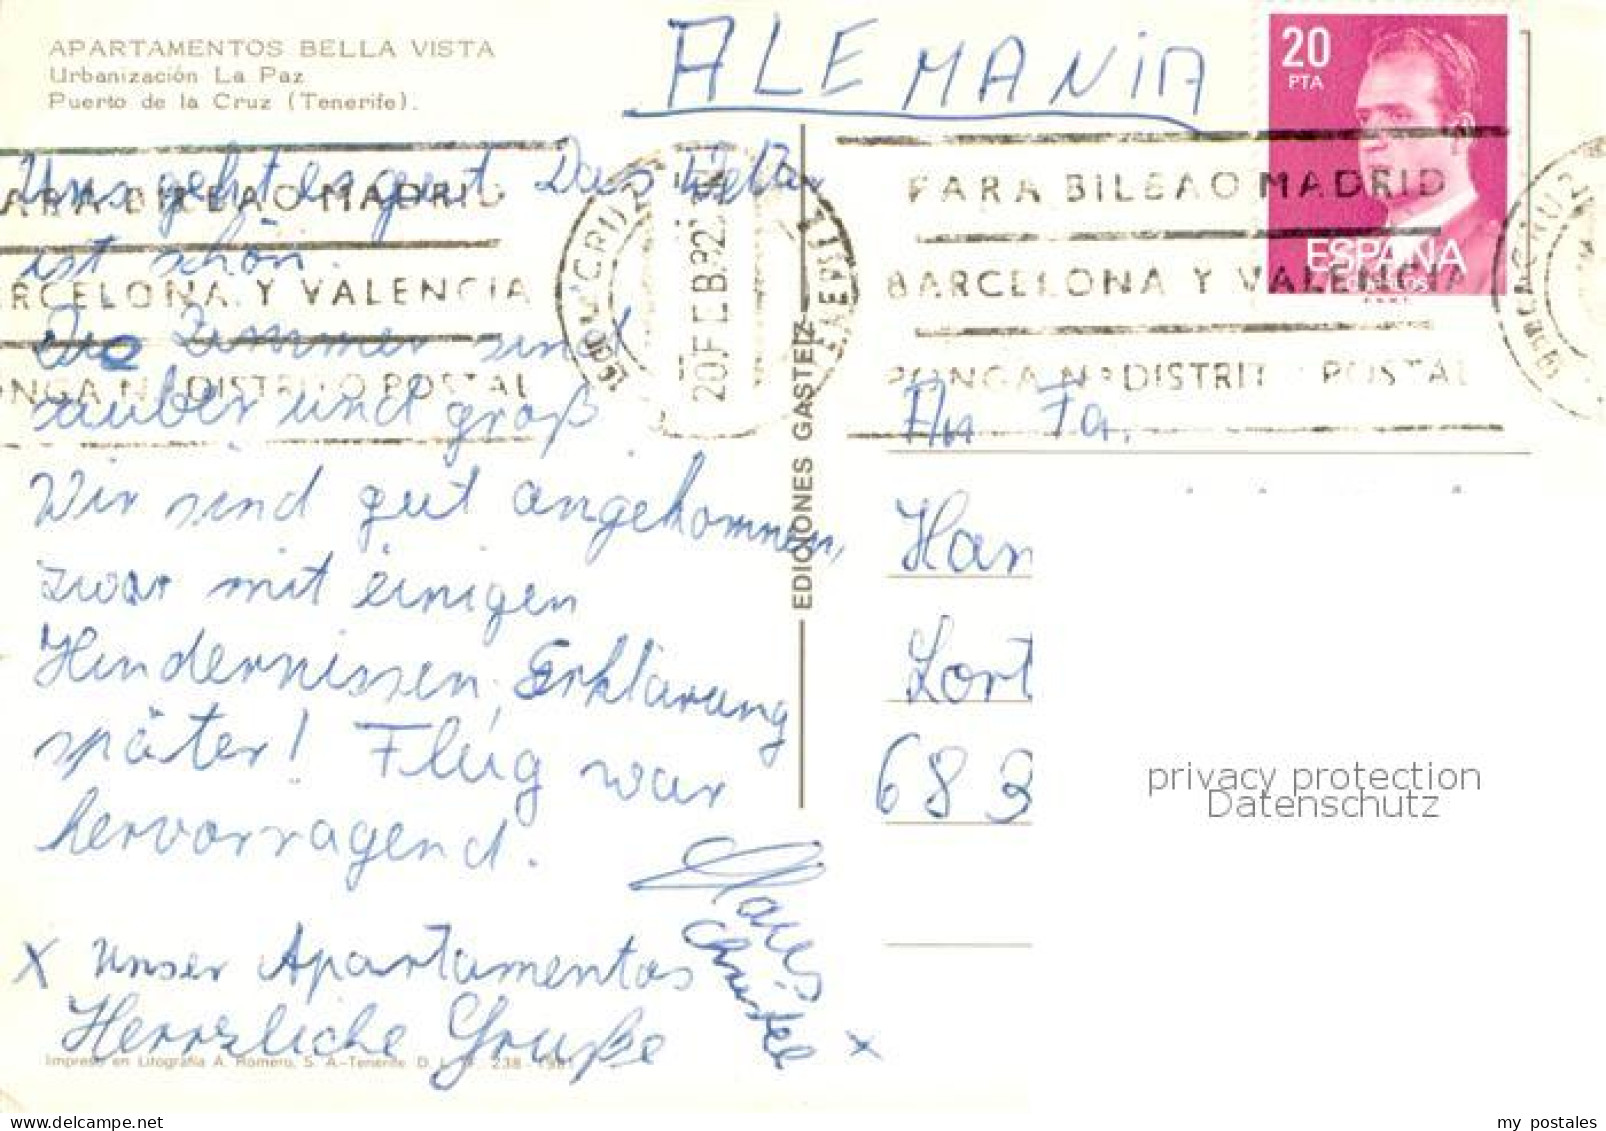 APARTAMENTOS BELLA VISTA
Urbanización La Paz
Puerto de la Cruz (Tenerife).
ALEMANiA
20
PTA
ESPAÑA
CORREOS
Uns geht es gut. Das Wetter
ist schön.
Die Zimmer sind
sauber und groß.
Wir sind gut angekommen,
zwar mit einigen
Hindernissen, Erklärung
später! Flug war
hervorragend.
X Unser Apartamentos
Herrzliche Gruße
Christke
X
ARA BILBAO MADRID
ARCELONA Y VALENCIA
ONGA Nº DISTRITO POSTAL
20 FEB 82
TENERIFE
PARA BILBAO MADRID
BARCELONA Y VALENCIA
PONGA Nº DISTRITO POSTAL
EDICIONES GASTEIZ
An Fa.
Han
Lort
683
privacy protection
Datenschutz
Impreso en Litografía A. Romero, S. A.-Tenerife. D. L. 238-1981
www.delcampe.net
my_postales